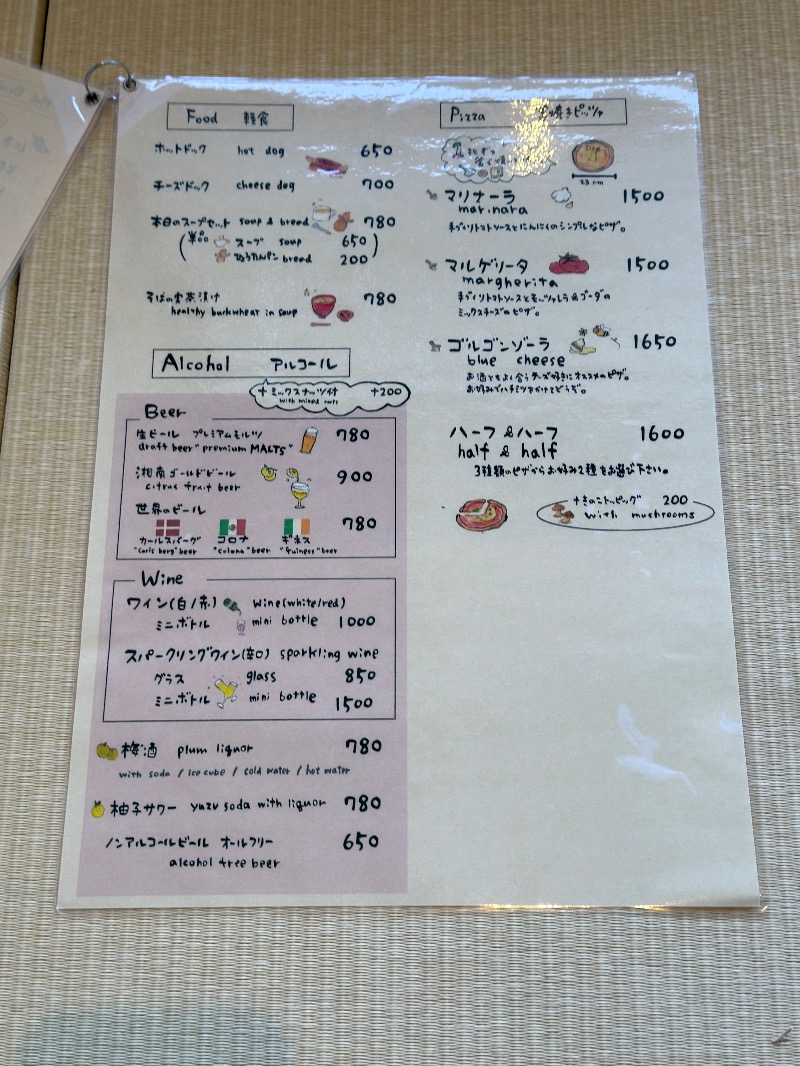 Food 軽食
ホットドック hot dog 650
チーズドック cheese dog 700
本日のスープセット soup & bread 780
(単品 スープ soup 650)
ひょうたんパン bread 200
そばの実茶漬け 780
healthy buckwheat in soup
Alcohol アルコール
+ミックスナッツ付 +200
with mixed nuts
Beer
生ビール プレミアムモルツ 780
draft beer "premium MALTS"
湘南ゴールドビール 900
citrus fruit beer
世界のビール
780
カールスバーグ コロナ ギネス
"Carls berg" beer "Colona" beer "Guiness" beer
Wine
ワイン(白/赤) wine(white/red)
ミニボトル mini bottle 1000
スパークリングワイン(辛口) sparkling wine
グラス glass 850
ミニボトル mini bottle 1500
梅酒 plum liquor 780
with soda / ice cube / cold water / hot water
柚子サワー yuzu soda with liquor 780
ノンアルコールビール オールフリー 650
alcohol free beer
Pizza 焼きピッツァ
23 cm
マリナーラ 1500
marinara
手づくりトマトソースとにんにくのシンプルなピザ。
マルゲリータ 1500
margherita
手づくりトマトソースとモッツァレラ&ゴーダの
ミックスチーズのピザ。
ゴルゴンゾーラ 1650
blue cheese
お酒ともよく合うチーズ好きにオススメのピザ。
お好みでハチミツをかけてどうぞ。
ハーフ&ハーフ 1600
half & half
3種類のピザからお好み2種をお選び下さい。
+きのこトッピング 200
with mushrooms